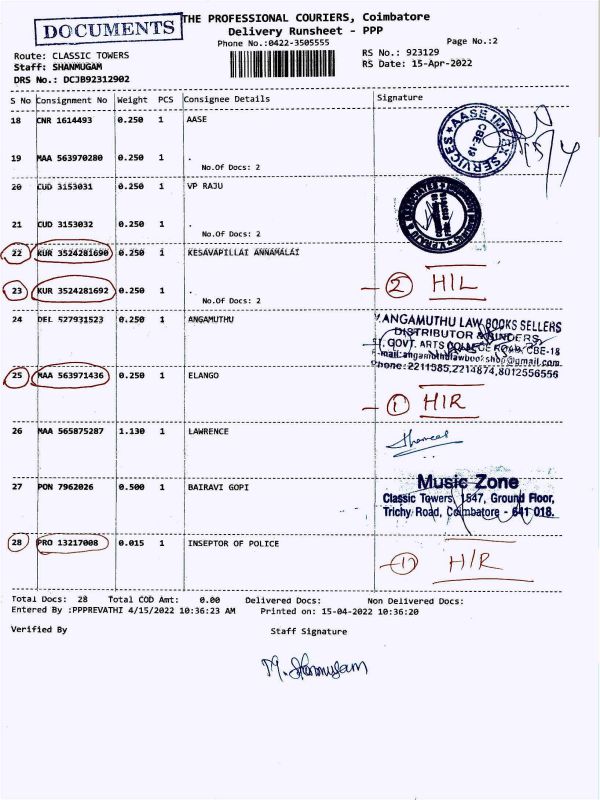 DOCUMENTS
THE PROFESSIONAL COURIERS, Coimbatore
Delivery Runsheet - PPP
Phone No.:0422-3505555
Page No.:2
Route: CLASSIC TOWERS
RS No.: 923129
Staff: SHANMUGAM
RS Date: 15-Apr-2022
DRS No.: DCJB92312902
S No Consignment No Weight PCS Consignee Details Signature
18 CNR 1614493 0.250 1 AASE
AASE IMPEX SERVICES CBE-18
19 MAA 563970280 0.250 1 .
No.Of Docs: 2
20 CUD 3153031 0.250 1 VP RAJU
21 CUD 3153032 0.250 1 .
No.Of Docs: 2
22 KUR 3524281690 0.250 1 KESAVAPILLAI ANNAMALAI
23 KUR 3524281692 0.250 1 .
No.Of Docs: 2
2 H/L
24 DEL 527931523 0.250 1 ANGAMUTHU
V.ANGAMUTHU LAW BOOKS SELLERS
DISTRIBUTOR & BINDERS,
GOVT. ARTS COLLEGE ROAD, CBE-18
E-mail:angamuthulawbookshop@gmail.com
Phone:2211585,2214874,8012556556
25 MAA 563971436 0.250 1 ELANGO
- 1 H/R
26 MAA 565875287 1.130 1 LAWRENCE
27 PON 7962026 0.500 1 BAIRAVI GOPI
Music Zone
Classic Towers, 1547, Ground Floor,
Trichy Road, Coimbatore - 641 018.
28 PRO 13217008 0.015 1 INSEPTOR OF POLICE
- 1 H/R
Total Docs: 28 Total COD Amt: 0.00 Delivered Docs: Non Delivered Docs:
Entered By :PPPREVATHI 4/15/2022 10:36:23 AM Printed on: 15-04-2022 10:36:20
Verified By Staff Signature
M. Shanmugam